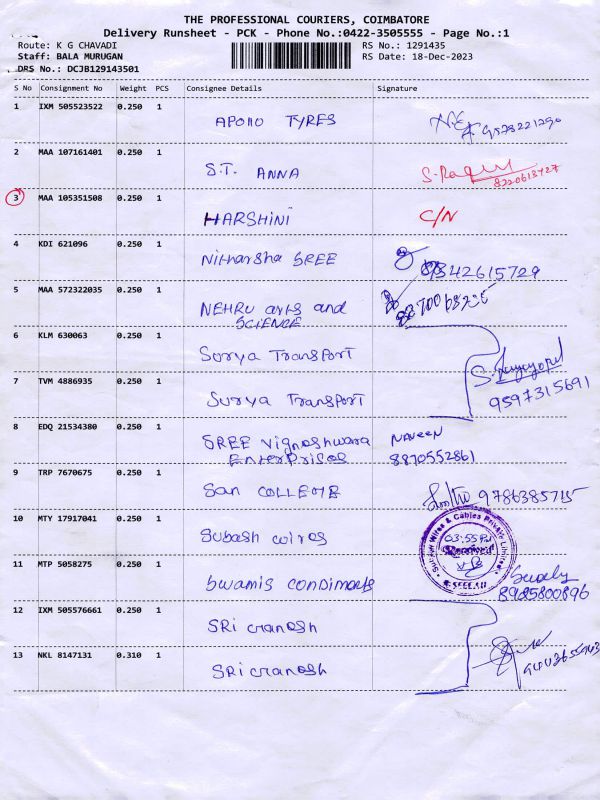 THE PROFESSIONAL COURIERS, COIMBATORE
Delivery Runsheet - PCK - Phone No.:0422-3505555 - Page No.:1
Route: K G CHAVADI
RS No.: 1291435
Staff: BALA MURUGAN
RS Date: 18-Dec-2023
DRS No.: DCJB129143501
S No Consignment No Weight PCS Consignee Details Signature
1 IXM 505523522 0.250 1 APOllO TYRES
2 MAA 107161401 0.250 1 S.T. ANNA
3 MAA 105351508 0.250 1 HARSHINI C/N
4 KDI 621096 0.250 1 Nitharsha SREE
9342615729
5 MAA 572322035 0.250 1 NEHRU arts and
SCIENCE
6 KLM 630063 0.250 1 Surya Transport
7 TVM 4886935 0.250 1 Surya Transport
9597315691
8 EDQ 21534380 0.250 1 SREE Vigneshwara NAVEEN
Enterprises 8870552861
9 TRP 7670675 0.250 1 San COLLEGE 9786385715
10 MTY 17917041 0.250 1 Subash wires
03:55 PM
Received
11 MTP 5058275 0.250 1 Swamis Condiments
8925800896
12 IXM 505576661 0.250 1 SRi Ganesh
13 NKL 8147131 0.310 1 SRi Ganesh